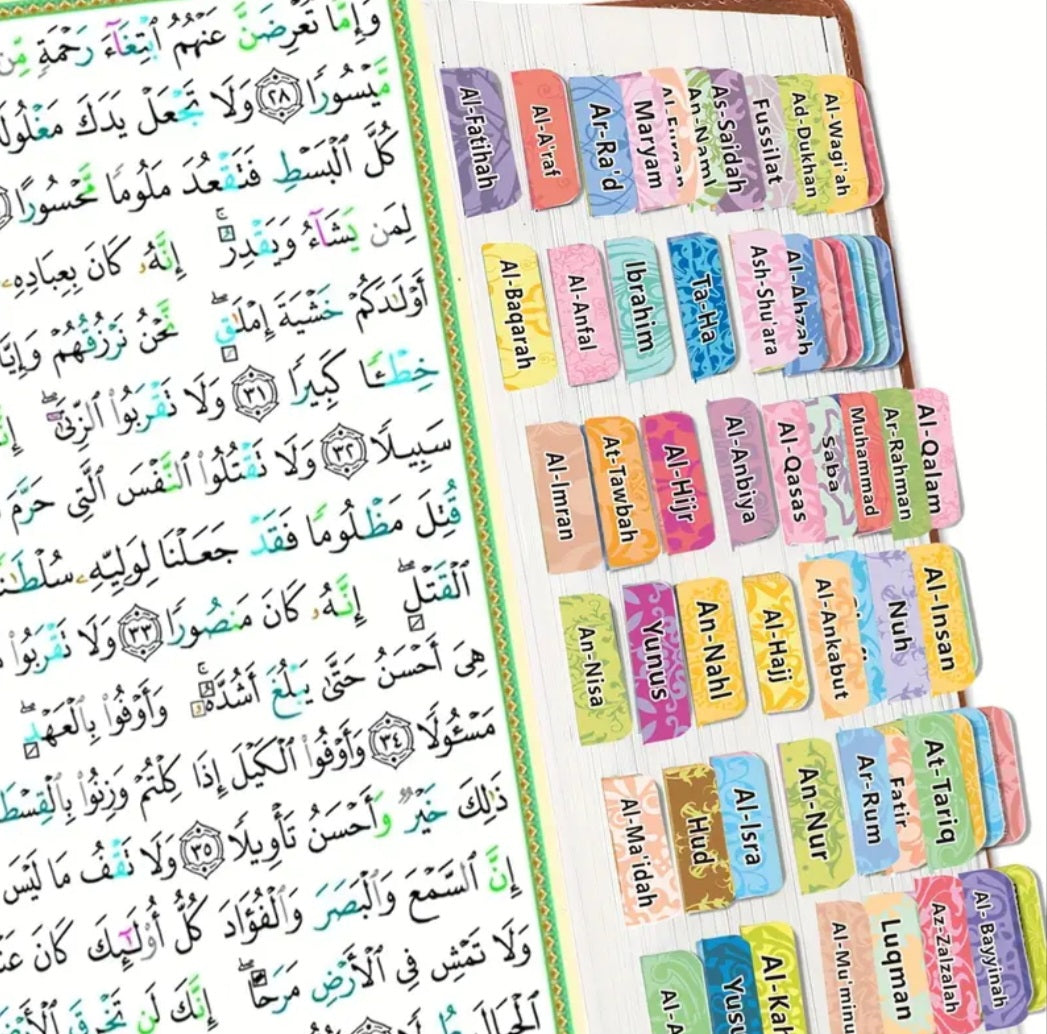 وَإِمَّا تُعْرِضَنَّ عَنْهُمُ ٱبْتِغَآءَ رَحْمَةٍ مِّن
مَّيْسُورًا ٢٨ وَلَا تَجْعَلْ يَدَكَ
كُلَّ ٱلْبَسْطِ فَتَقْعُدَ مَلُومًا مَّحْسُورًا
لِمَن يَشَآءُ وَيَقْدِرُ ۚ إِنَّهُۥ كَانَ بِعِبَادِهِۦ
أَوْلَٰدَكُمْ خَشْيَةَ إِمْلَٰقٍ ۖ نَّحْنُ نَرْزُقُهُمْ
خِطْـًٔا كَبِيرًا ٣١ وَلَا تَقْرَبُوا۟ ٱلزِّنَىٰٓ ۖ
سَبِيلًا ٣٢ وَلَا تَقْتُلُوا۟ ٱلنَّفْسَ ٱلَّتِى حَرَّمَ
قُتِلَ مَظْلُومًا فَقَدْ جَعَلْنَا لِوَلِيِّهِۦ
ٱلْقَتْلِ ۖ إِنَّهُۥ كَانَ مَنصُورًا ٣٣ وَلَا تَقْرَبُوا۟
هِىَ أَحْسَنُ حَتَّىٰ يَبْلُغَ أَشُدَّهُۥ ۚ وَأَوْفُوا۟ بِٱلْعَهْدِ ۖ
مَسْـُٔولًا ٣٤ وَأَوْفُوا۟ ٱلْكَيْلَ إِذَا كِلْتُمْ وَزِنُوا۟
ذَٰلِكَ خَيْرٌ وَأَحْسَنُ تَأْوِيلًا ٣٥ وَلَا تَقْفُ مَا لَيْسَ
إِنَّ ٱلسَّمْعَ وَٱلْبَصَرَ وَٱلْفُؤَادَ كُلُّ أُو۟لَٰٓئِكَ كَانَ
وَلَا تَمْشِ فِى ٱلْأَرْضِ مَرَحًا ۖ إِنَّكَ لَن تَخْرِقَ
Al-Fatihah
Al-A'raf
Ar-Ra'd
Maryam
Al-Furqan
An-Naml
As-Saidah
Fussilat
Ad-Dukhan
Al-Wagi'ah
Al-Baqarah
Al-Anfal
Ibrahim
Ta-Ha
Ash-Shu'ara
Al-Ahzab
Al-Imran
At-Tawbah
Al-Hijr
Al-Anbiya
Al-Qasas
Saba
Muhammad
Ar-Rahman
Al-Qalam
An-Nisa
Yunus
An-Nahl
Al-Hajj
Al-Ankabut
Nuh
Al-Insan
Al-Ma'idah
Hud
Al-Isra
An-Nur
Ar-Rum
Fatir
At-Tariq
Al-A
Yusu
Al-Kah
Al-Mu'minu
Luqman
Az-Zalzalah
Al-Bayyinah